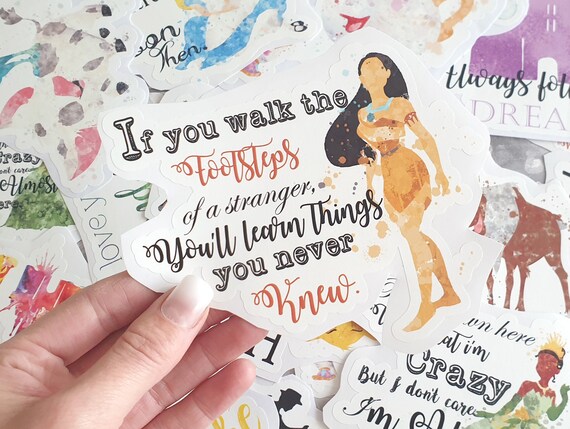 If you walk the
Footsteps
of a stranger,
You'll learn Things
you never
Knew.
on
Then.
Always foll
DREA
Crazy
don't care
Almos
here.
lovey
H
wn here
at i'm
Crazy
But I don't care
I'm Al